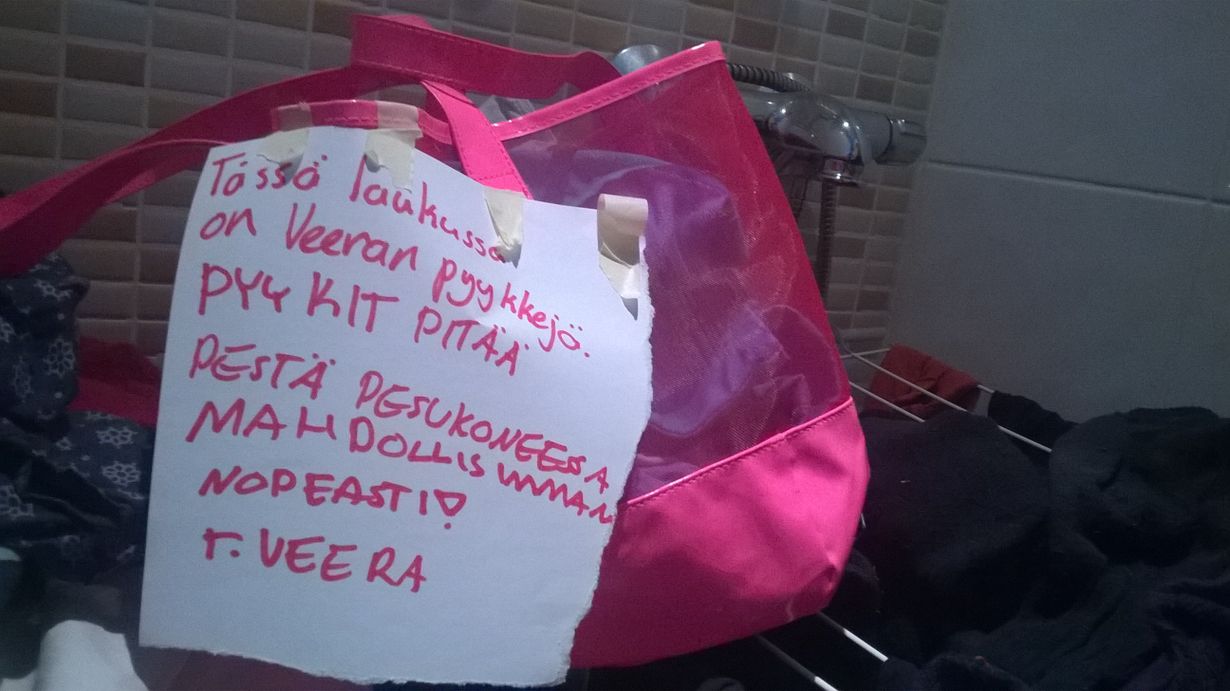 Tässä laukussa
on Veeran pyykkejä.
PYYKIT PITÄÄ
PESTÄ PESUKONEESSA
MAHDOLLISIMMAN
NOPEASTI♡
T. VEERA